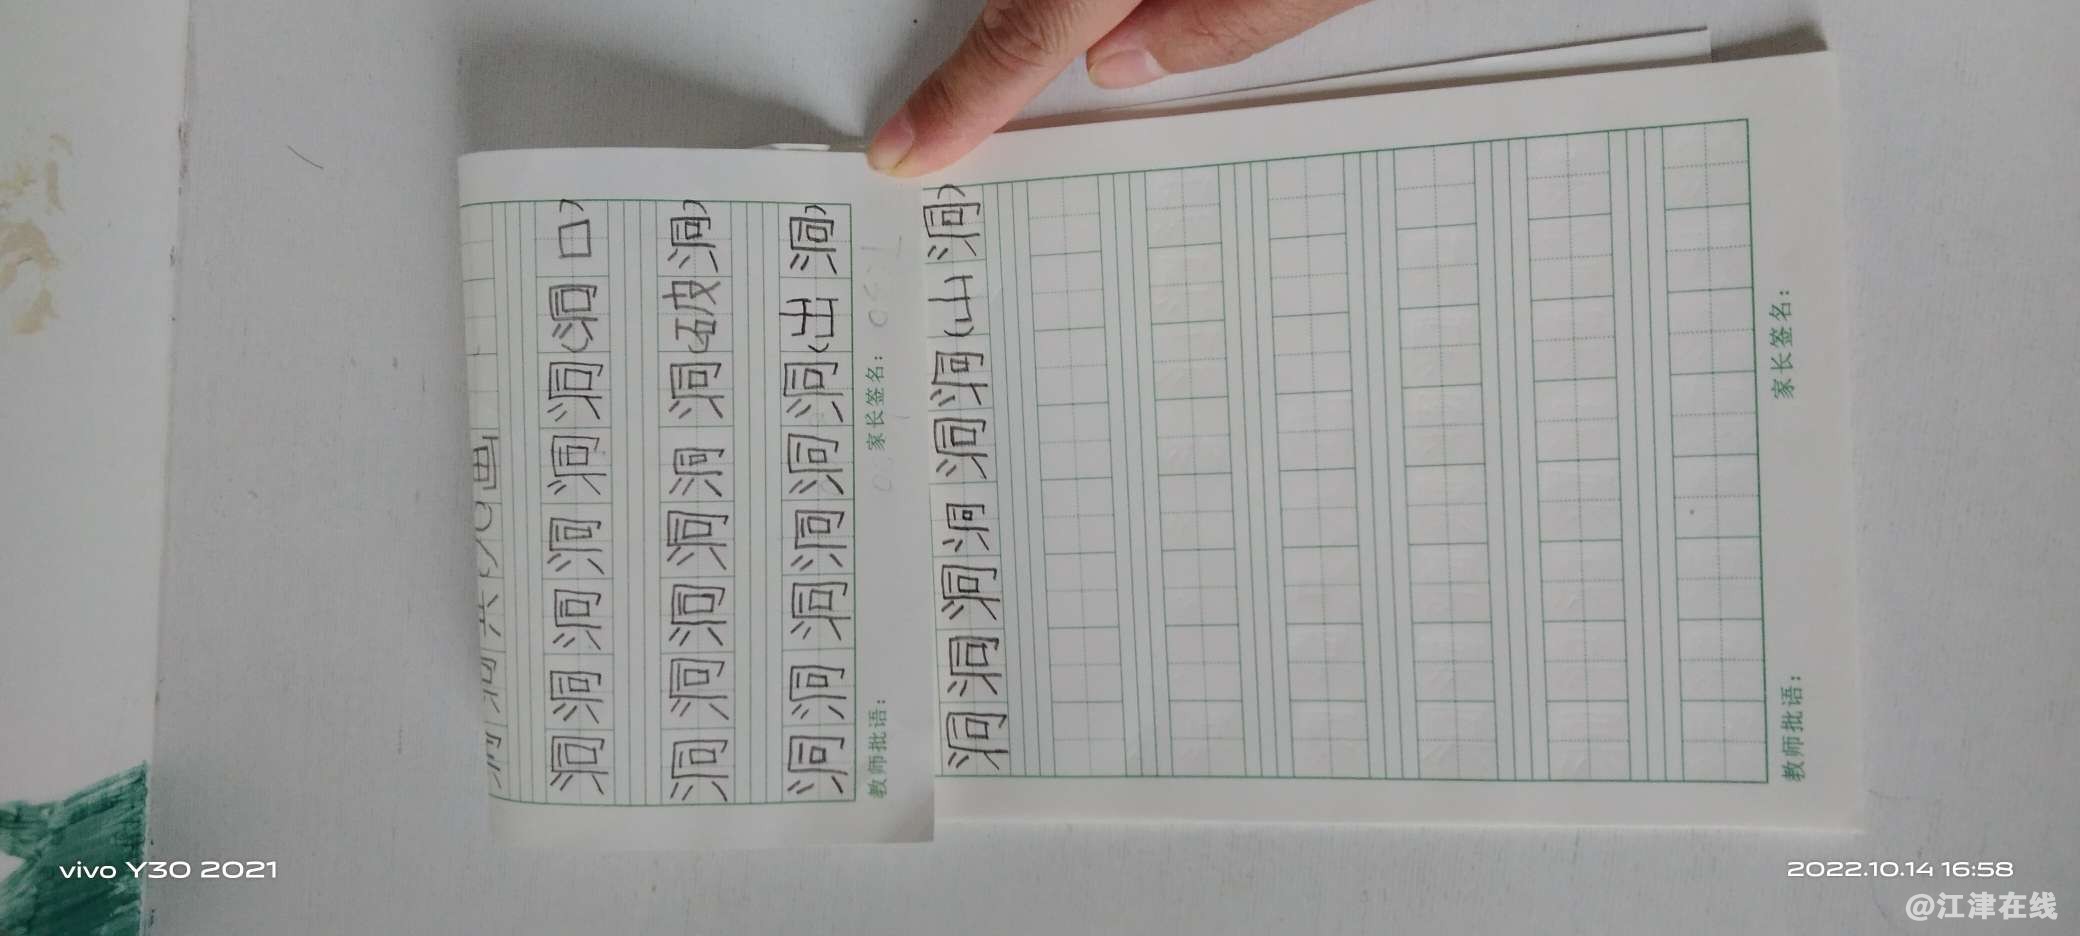 共 画
洞洞洞洞洞洞(洞口)
洞洞洞洞洞洞(破洞)
洞洞洞洞洞洞(出洞)
教师批语： 家长签名：
洞洞洞洞洞洞(山洞)
教师批语： 家长签名：
vivo Y30 2021
2022.10.14 16:58
@江津在线